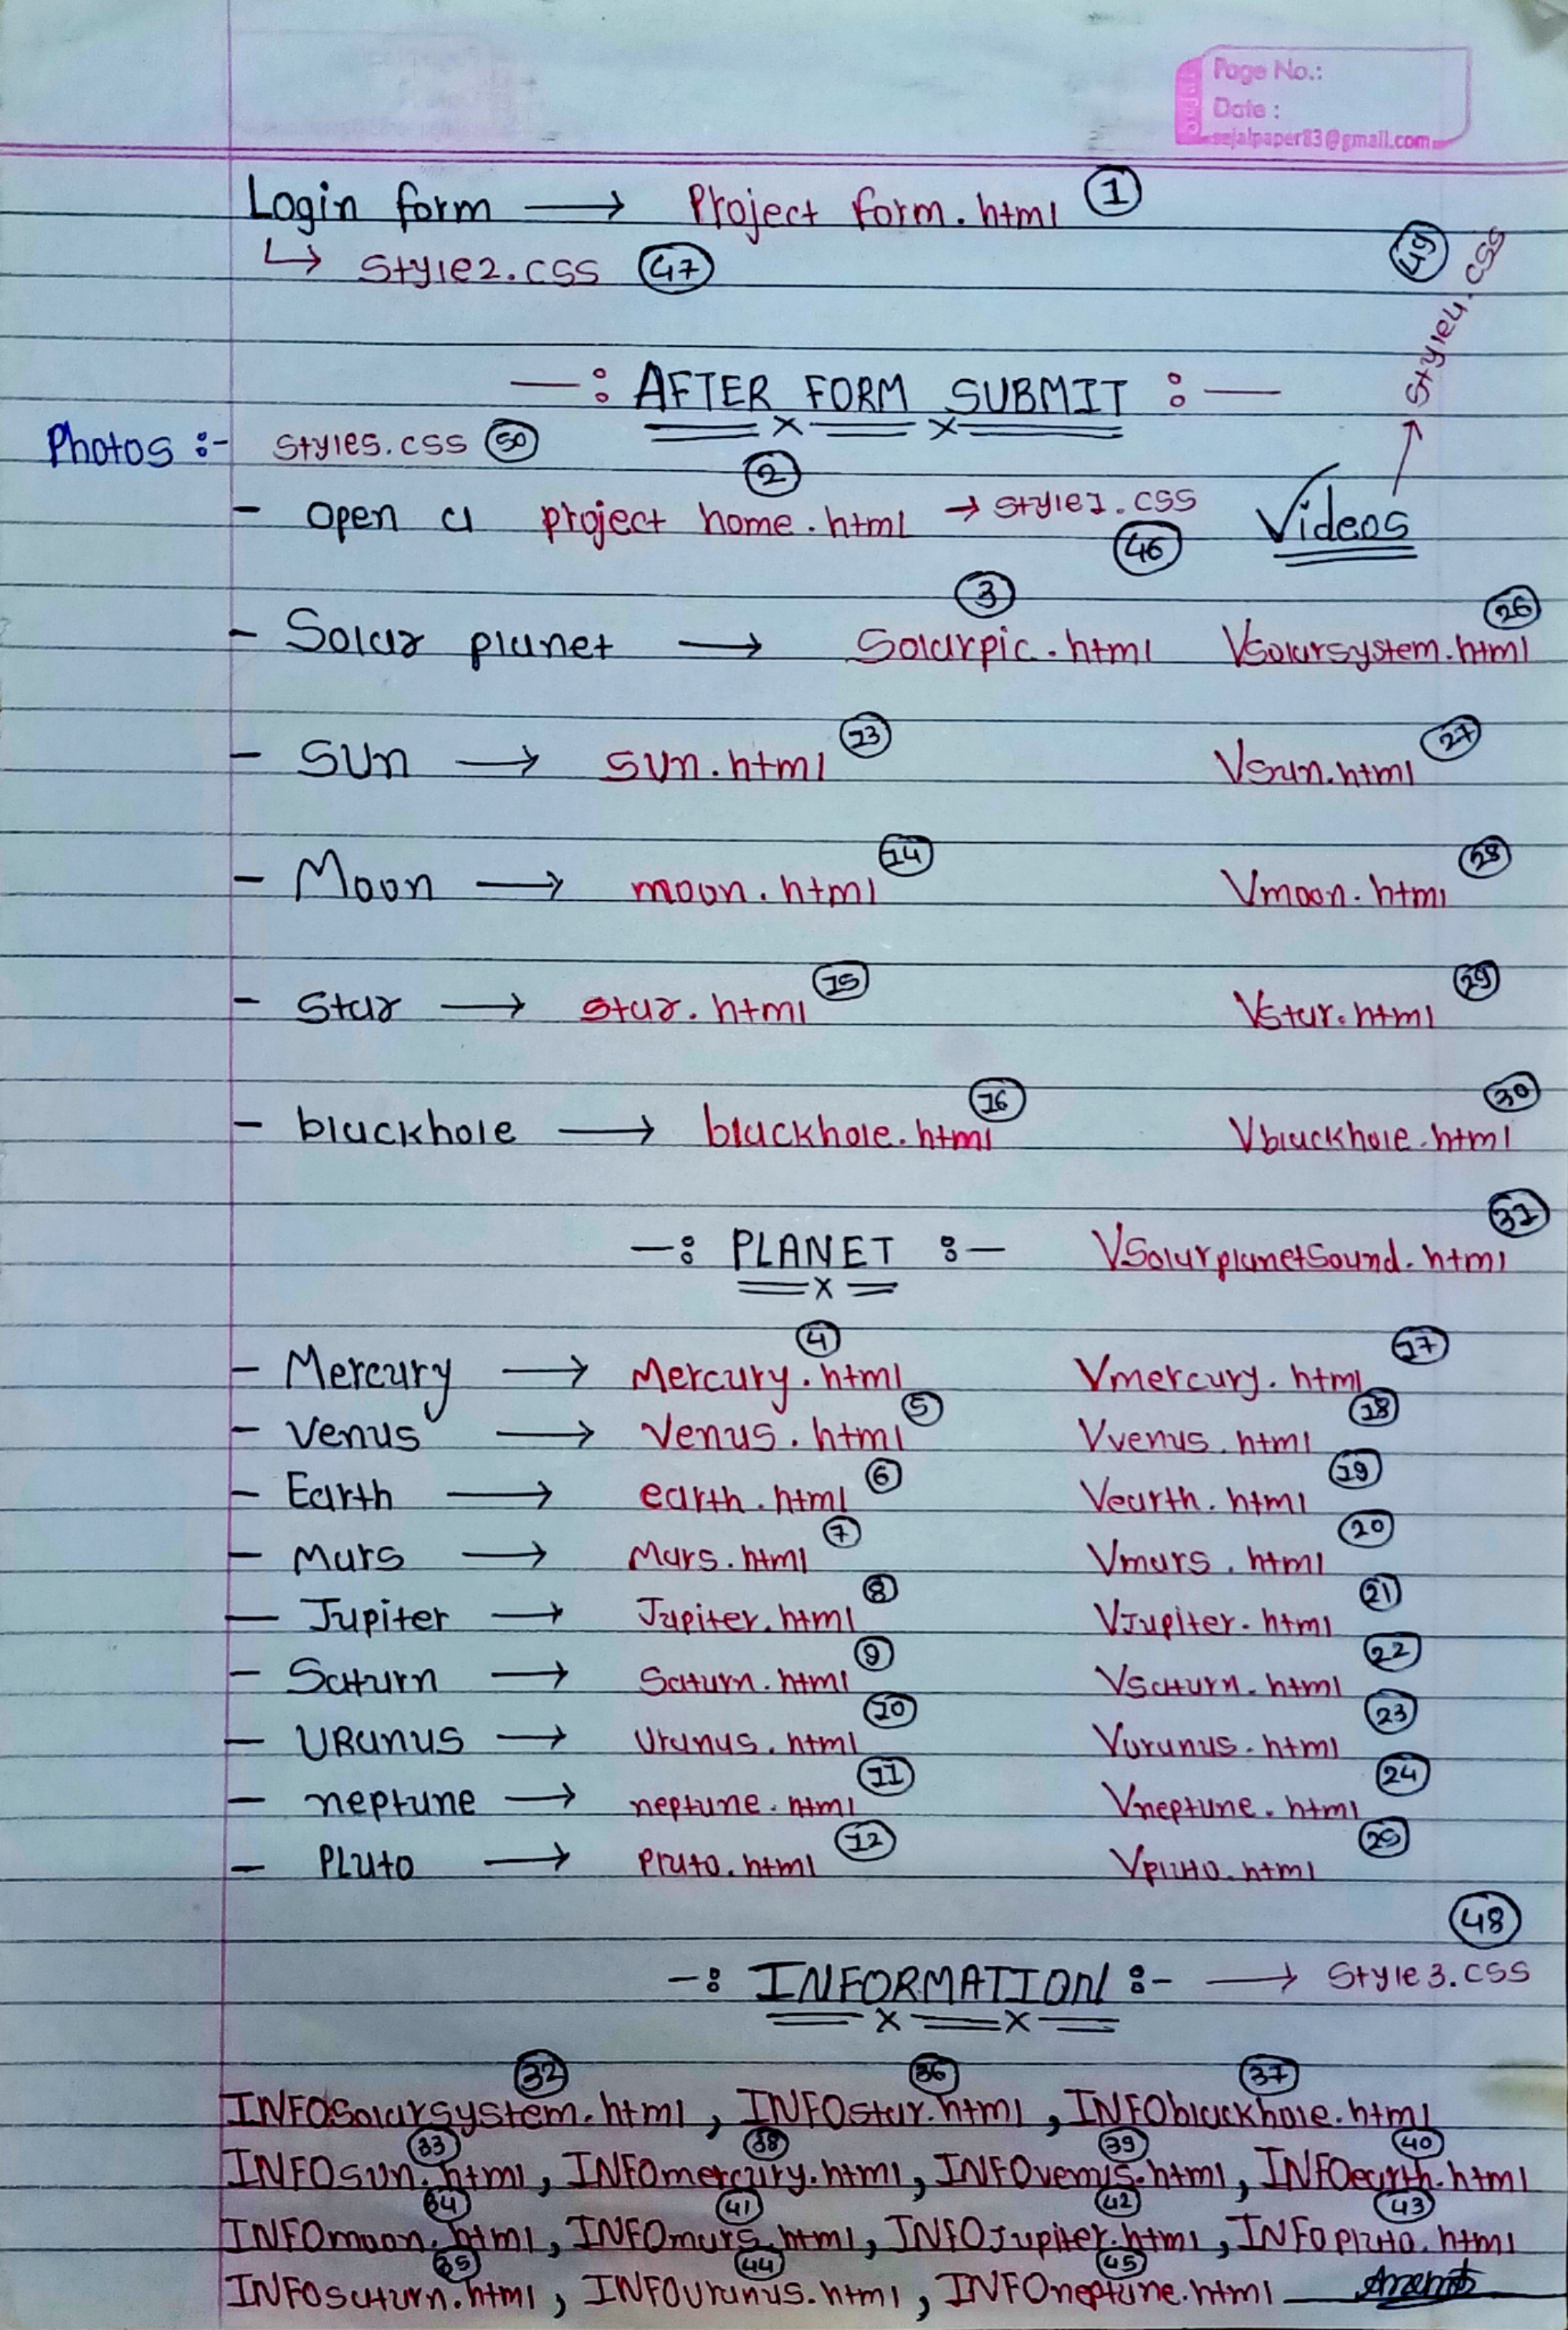 Page No.:
Date :
sejalpaper83@gmail.com
Login form → Project form.html ①
↳ Style2.css ㊼
㊾ Style4.css
—: AFTER FORM SUBMIT :—
Photos :- Style5.css ㊿
②
- open a project home.html → style1.css ㊻ Videos
- Solar planet → Solarpic.html ③ Vsolarsystem.html ㉖
- SUn → sun.html ⑬ Vsun.html ㉗
- Moon → moon.html ⑭ Vmoon.html ㉘
- Star → star.html ⑮ Vstar.html ㉙
- blackhole → blackhole.html ⑯ Vblackhole.html ㉚
—: PLANET :— VSolarplanetSound.html ㉛
- Mercury → Mercury.html ④ Vmercury.html ⑰
- Venus → Venus.html ⑤ Vvenus.html ⑱
- Earth → earth.html ⑥ Vearth.html ⑲
- Mars → Mars.html ⑦ Vmars.html ⑳
- Jupiter → Jupiter.html ⑧ VJupiter.html ㉑
- Saturn → Saturn.html ⑨ Vsaturn.html ㉒
- URanus → Uranus.html ⑩ Vuranus.html ㉓
- neptune → neptune.html ⑪ Vneptune.html ㉔
- PLuto → Pluto.html ⑫ Vpluto.html ㉕
-: INFORMATION :- → Style3.css ㊽
㉜ ㊱ ㊲
INFOSolarsystem.html, INFOstar.html, INFOblackhole.html
㉝ ㊳ ㊴ ㊵
INFOsun.html, INFOmercury.html, INFOvenus.html, INFOearth.html
㉞ ㊶ ㊷ ㊸
INFOmoon.html, INFOmars.html, INFOJupiter.html, INFOpluto.html
㉟ ㊹ ㊺
INFOsaturn.html, INFOUranus.html, INFOneptune.html